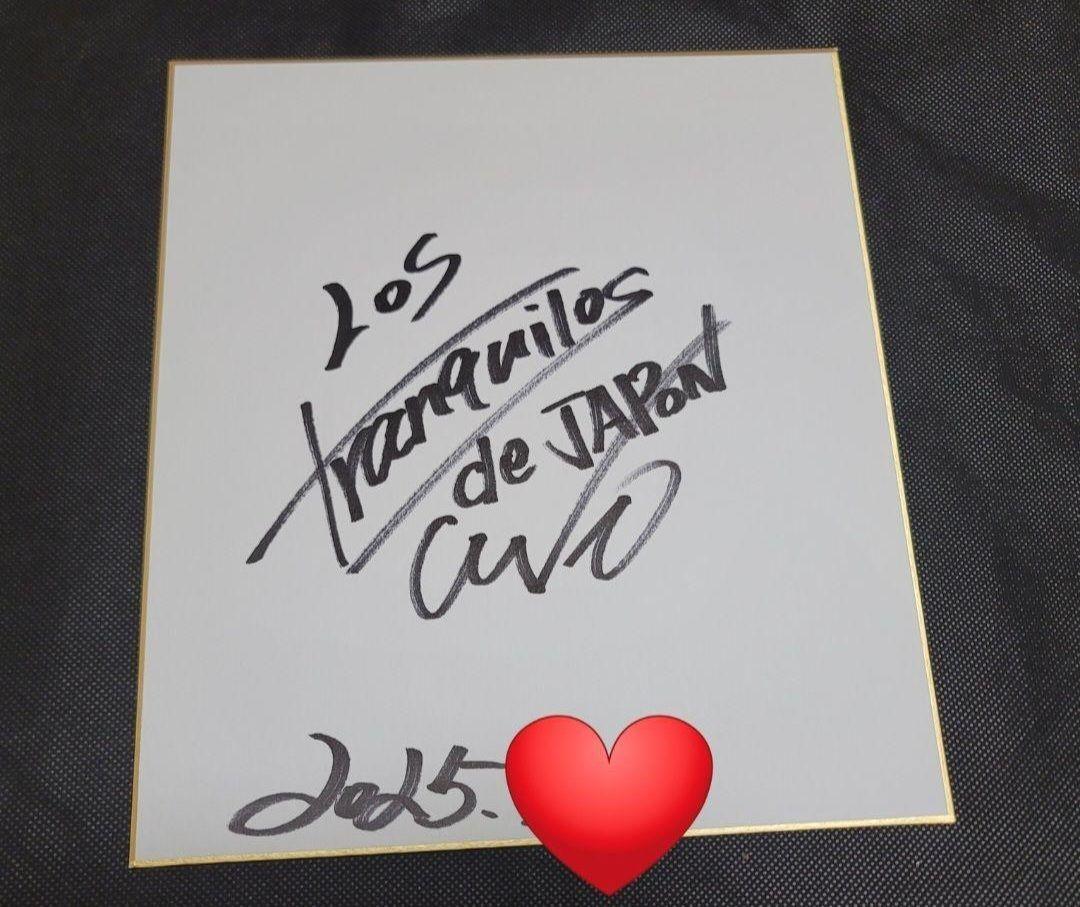 Los
tranquilos
de JAPON
2025.